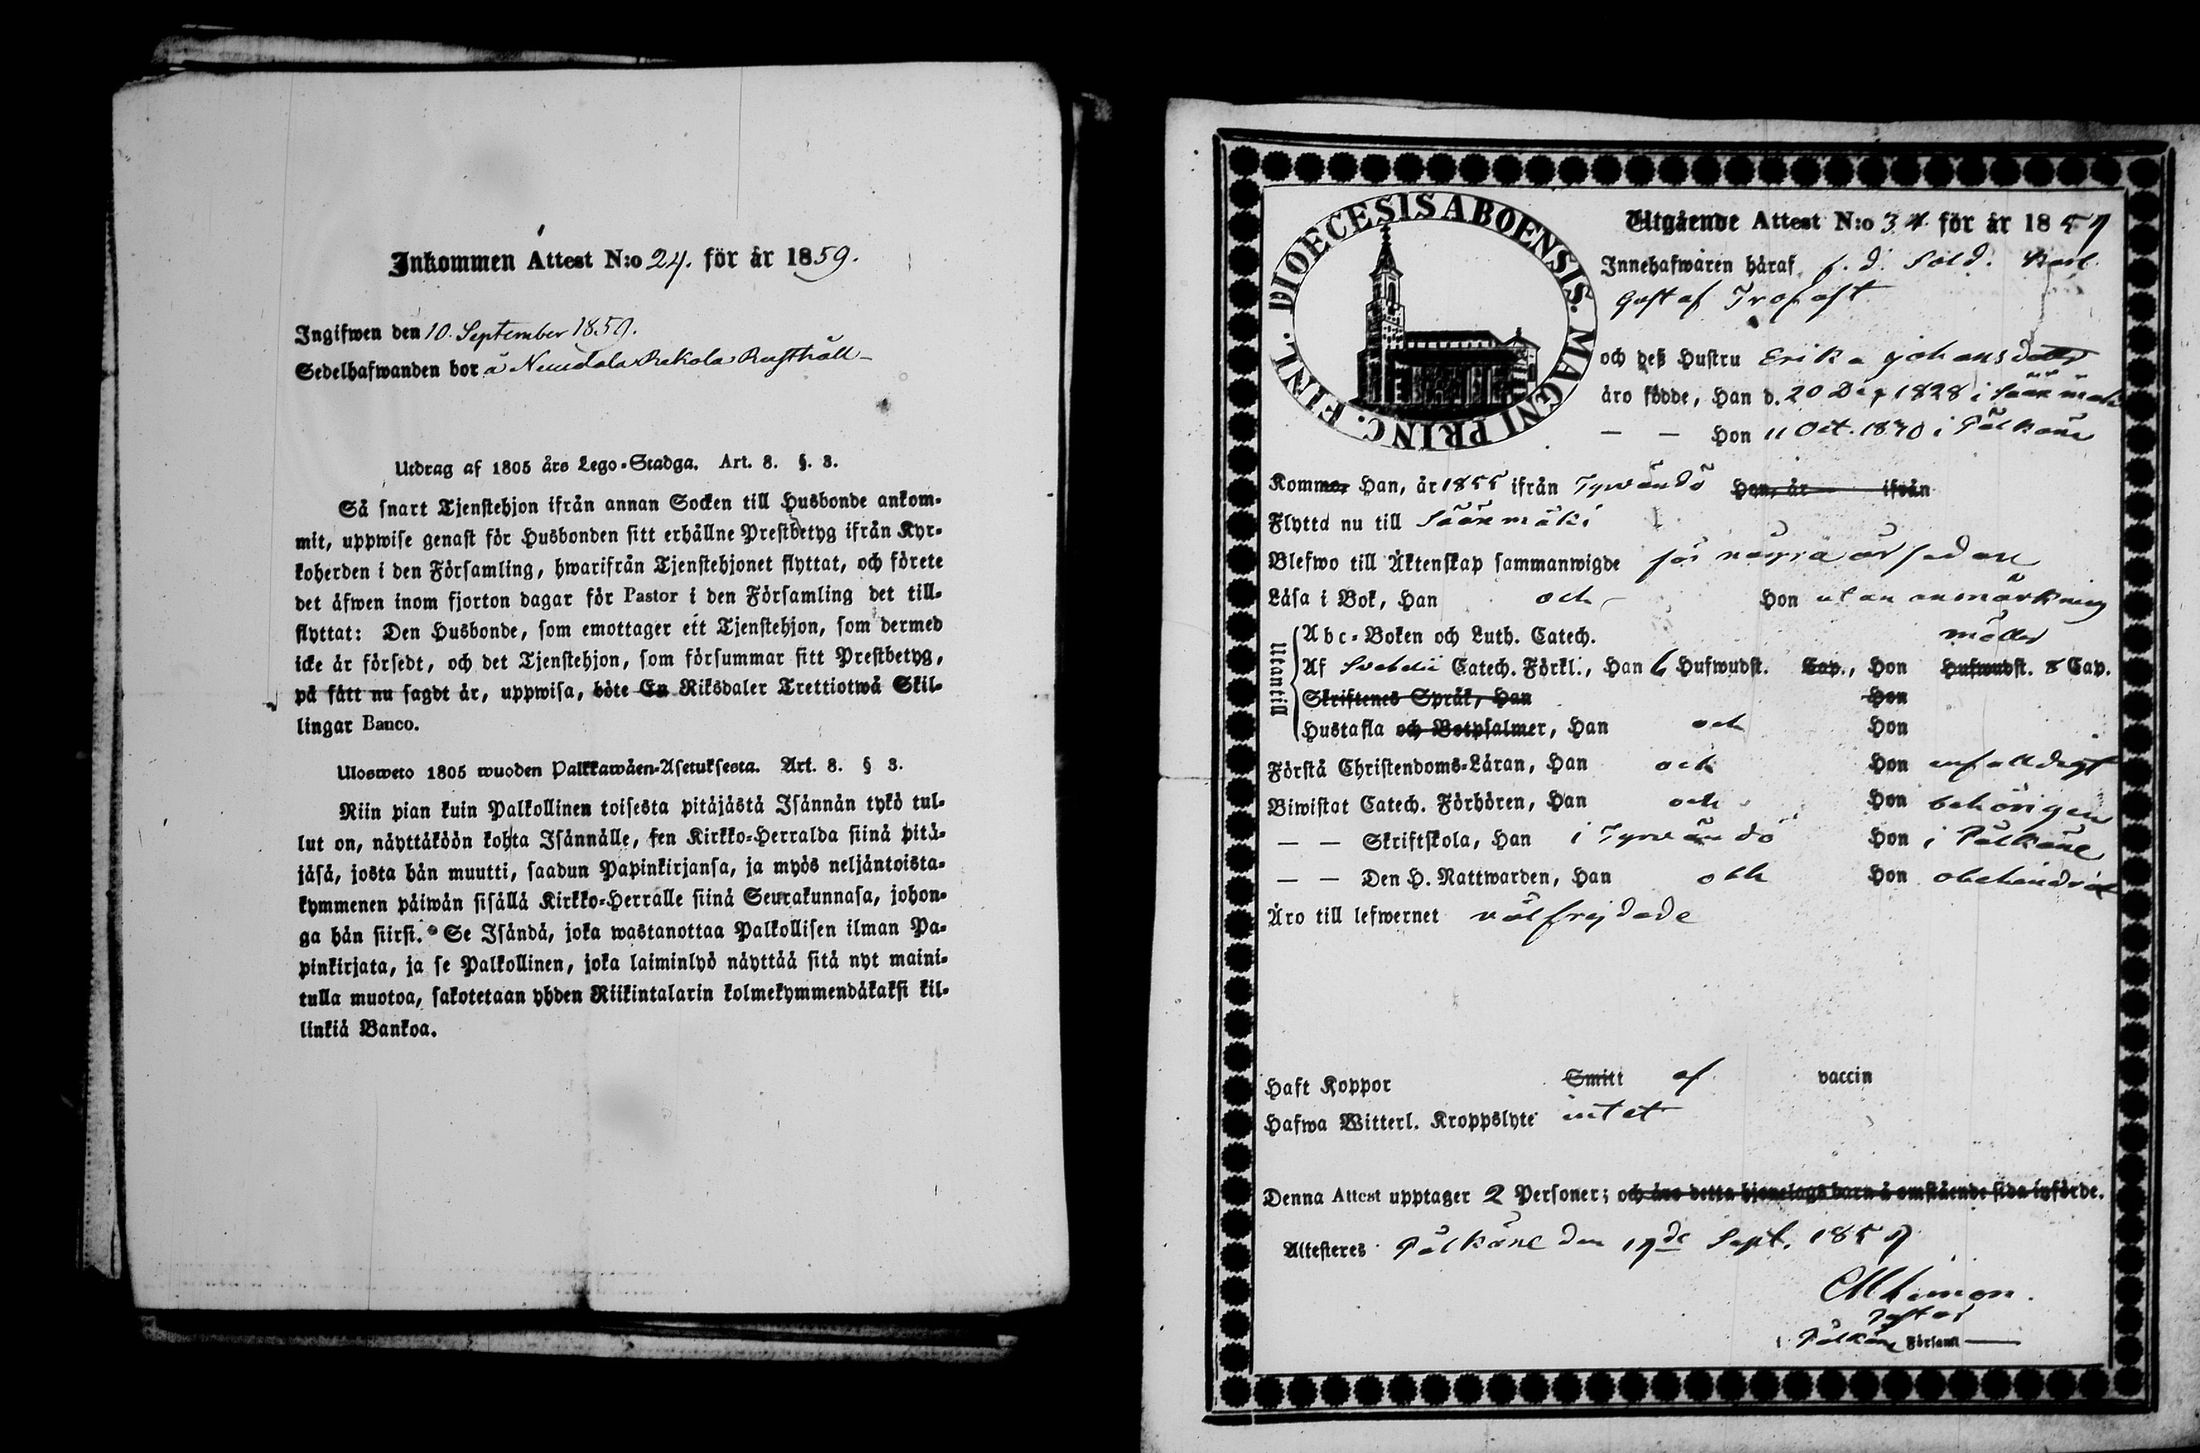 Inkommen Attest N:o 24. för år 1859.
Ingifwen den 10. September 1859.
Sedelhafwanden bor å Rekola Rusthåll
Utdrag af 1805 års Lego-Stadga. Art. 8. §. 3.
Så snart Tjenstehjon ifrån annan Socken till Husbonde ankom-
mit, uppwise genast för Husbonden sitt erhållne Prestbetyg ifrån Kyr-
koherden i den Församling, hwarifrån Tjenstehjonet flyttat, och förete
det äfwen inom fjorton dagar för Pastor i den Församling det till-
flyttat: Den Husbonde, som emottager ett Tjenstehjon, som dermed
icke är försedt, och det Tjenstehjon, som försummar sitt Prestbetyg,
på sätt nu sagdt är, uppwisa, böte En Riksdaler Trettiotwå Skil-
lingar Banco.
Ulosweto 1805 wuoden Palkkawäen-Asetuksesta. Art. 8. § 3.
Niin pian kuin Palkollinen toisesta pitäjästä Isännän tykö tul-
lut on, näyttäköön kohta Isännälle, sen Kirkko-Herralda siinä pitä-
jäsä, josta hän muutti, saadun Papinkirjansa, ja myös neljäntoista-
kymmenen päiwän sisällä Kirkko-Herralle siinä Seurakunnasa, johon-
ga hän siirsi. Se Isändä, joka wastanottaa Palkollisen ilman Pa-
pinkirjata, ja se Palkollinen, joka laiminlyö näyttää sitä nyt maini-
tulla muotoa, sakotetaan yhden Riikintalarin kolmekymmendäkaksi kil-
linkiä Bankoa.
DIOECESIS ABOENSIS. MAGNI PRINC. FINL.
Utgående Attest N:o 34 för år 1859
Innehafwaren häraf f. d. Sold. Karl
Gustaf Trofast
och dess Hustru Erika Johansdotter
äro födde, Han d. 20 Dec 1828 i Sääxmäki
— — Hon 11 Oct. 1830 i Pälkäne
Kommer Han, år 1855 ifrån Tyrvändö Hon, år ifrån
Flytta nu till Sääxmäki
Blefwo till Äktenskap sammanwigde för några år sedan
Läsa i Bok, Han och Hon utan anmärkning
Utantill
Abc-Boken och Luth. Catech.
Af Svebelii Catech. Förkl., Han 6 Hufwudst. Cap., Hon Hufwudst. 8 Cap.
Skriftenes Språk, Han Hon
Hustafla och Botpsalmer, Han och Hon
Förstå Christendoms-Läran, Han och Hon enfalldigt
Biwistat Catech. Förhören, Han och Hon behörigen
— — Skriftskola, Han i Tyrvändö Hon i Pälkäne
— — Den H. Nattwarden, Han och Hon obehindrat
Äro till lefwernet välfrejdade
Haft Koppor Smitt af vaccin
Hafwa Witterl. Kroppslyte intet
Denna Attest upptager 2 Personer; och äro detta hjonelags barn å omstående sida införde.
Attesteres Pälkäne den Sept. 1859
Pastor
i Pälkäne Församl